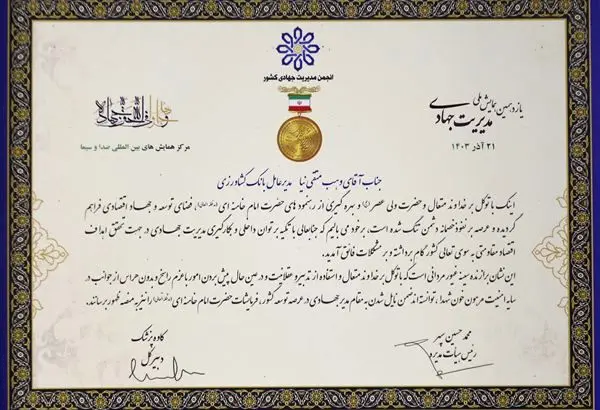 انجمن مدیریت جهادی کشور
یازدهمین همایش ملی
مدیریت جهادی
۲۱ آذر ۱۴۰۳
وجاهدوا فی الله حق جهاده
مرکز همایش های بین المللی صدا و سیما
جناب آقای وهب متقی نیا مدیرعامل بانک کشاورزی
اینک با توکل بر خداوند متعال و حضرت ولی عصر و بهره گیری از رهنمود های حضرت امام خامنه ای فضای توسعه و جهاد اقتصادی فراهم
گردیده و عرصه بر نفوذ خصمانه دشمن تنگ شده است. برخود می بالیم که جنابعالی با تکیه بر توان داخلی و بکارگیری مدیریت جهادی در جهت تحقق اهداف
اقتصاد مقاومتی به سوی تعالی کشور گام برداشته و بر مشکلات فائق آمدید.
این نشان برازنده سینه غیور مردانی است که با توکل بر خداوند متعال و استفاده از تدبیر و عقلانیت و در عین حال پیش بردن امور با عزم راسخ و بدون هراس از جوانب در
سایه امنیت مرهون خون شهدا، توانسته اند ضمن نایل شدن به مقام مدیر جهادی در عرصه توسعه کشور، فرمایشات حضرت امام خامنه ای را نیز به منصه ظهور برسانند.
محمد حسین سپهر
رئیس هیأت مدیره
کاوه پزشک
دبیر کل